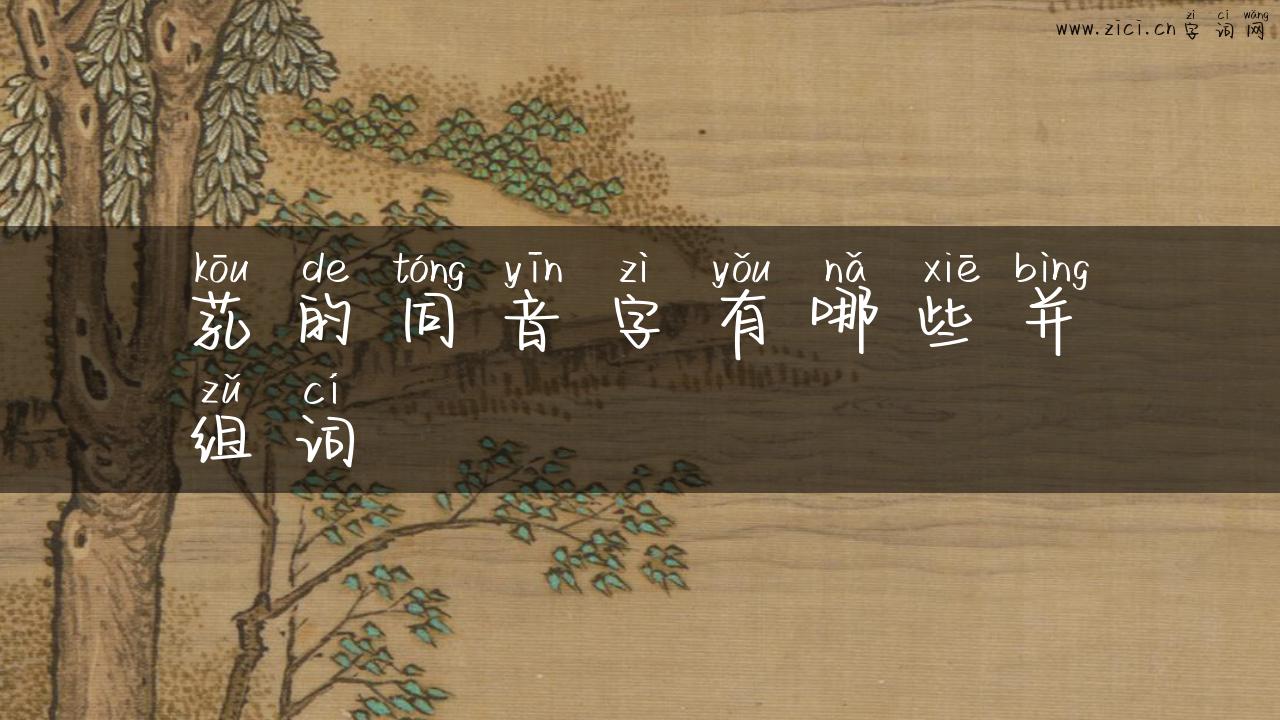 zì cí wǎng
www.zici.cn 字词网
kōu de tóng yīn zì yǒu nǎ xiē bìng
芤的同音字有哪些并
zǔ cí
组词